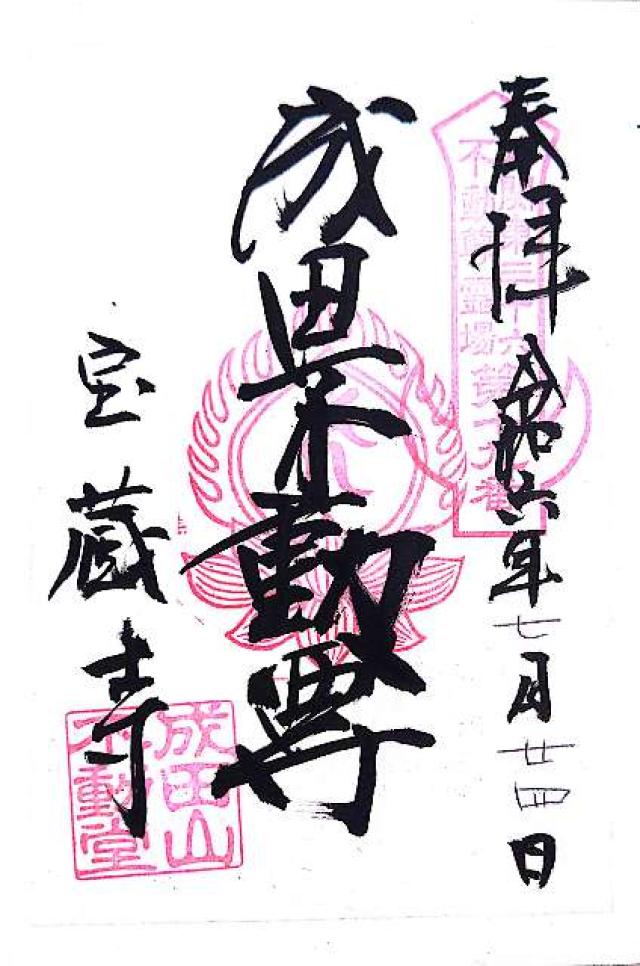 奉拝 令和六年七月廿四日
関東三十六
不動尊霊場 第九番
成田不動尊
宝蔵寺
成田山
不動堂